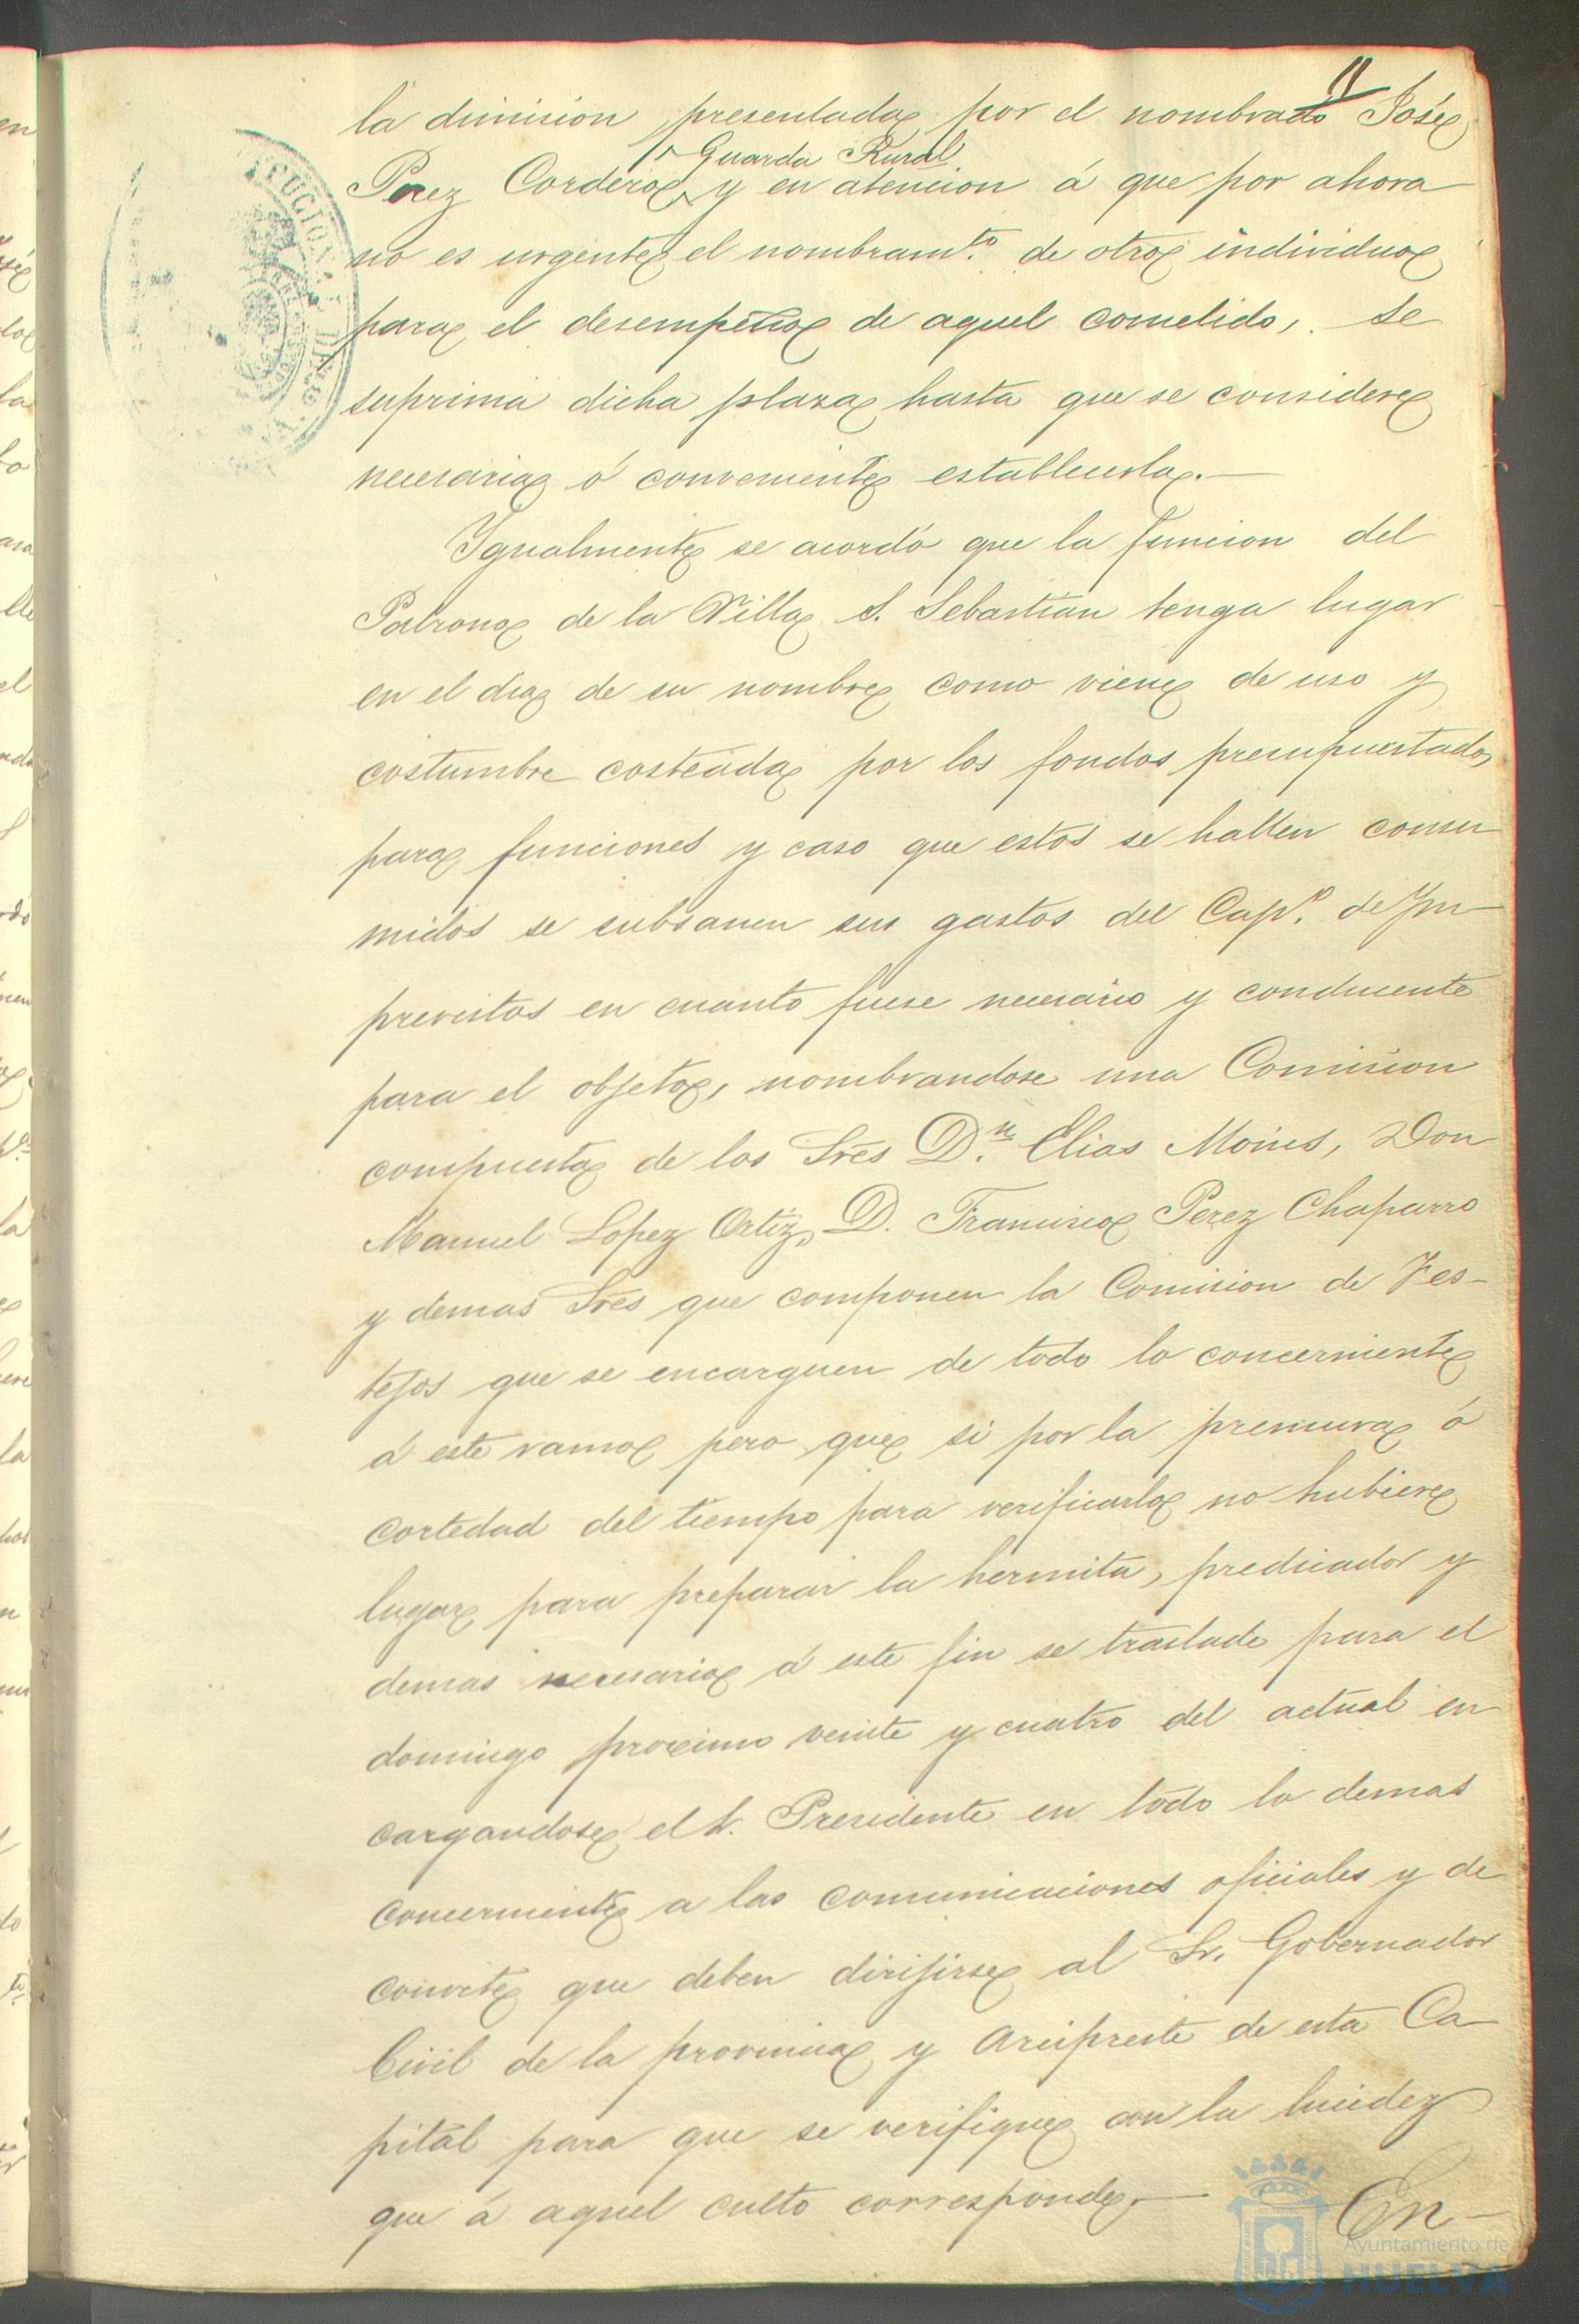 11
la dimision presentada por el nombrado José
Guarda Rural
Perez Cordero y en atencion á que por ahora
no es urgente el nombramto. de otro individuo
para el desempeño de aquel cometido, se
suprima dicha plaza hasta que se considere
necesaria ó conveniente establecerla.—
Igualmente se acordó que la funcion del
Patrono de la Villa S. Sebastian tenga lugar
en el dia de su nombre como viene de uso y
costumbre costeada por los fondos presupuestados
para funciones y caso que estos se hallen consu
midos se subsanen sus gastos del Capo. de Ym-
previstos en cuanto fuese necesario y conducente
para el objeto, nombrandose una Comision
compuesta de los Sres Dn. Elias Moises, Don
Manuel Lopez Ortiz, D. Francisco Perez Chaparro
y demas Sres que componen la Comision de Fes-
tejos que se encarguen de todo lo concerniente
á este ramo pero que si por la premura ó
cortedad del tiempo para verificarlo no hubiere
lugar para preparar la hermita, predicador y
demas necesario á este fin se traslade para el
domingo proximo veinte y cuatro del actual en
cargandose el S. Presidente en todo lo demas
concerniente a las comunicaciones oficiales y de
convite que deben dirijirse al Sr. Gobernador
Civil de la provincia y Arcipreste de esta Ca-
pital para que se verifique con la lucidez
que á aquel culto corresponde.—
En-
Ayuntamiento de
HUELVA